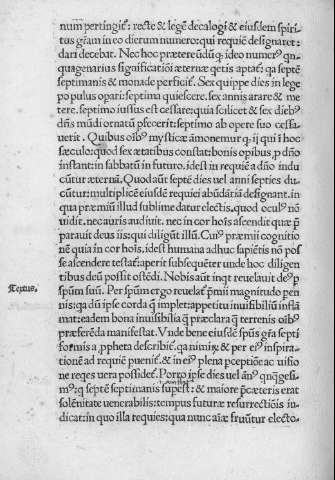 num pertingit̃: recte & legē decalogi & eiusdem spiri
tus gr̃am in eo dierum numero: qui requiē designaret:
dari decebat. Nec hoc prætereūdū q; ideo numerꝰ qn̄
quagenarius significatiōi æternæ q̃etis aptat̃: qa septē
septimanis & monade perficit̃. Sex quippe dies in lege
populus opari: septima quiescere. sex annis arare & me
tere. septimo iussus est cessare: quia scilicet & sex diebꝰ
dn̄s mūdi ornatū pfecerit: septimo ab opere suo cessa
uerit. Quibus oīb᾽ mysticæ āmonemur q; ij qui ī hoc
sæculo: quod sex ætatibus constat: bonis opibus p dn̄o
instant: in sabbatū in futuro. idest in requiē a dn̄o indu
cūtur æternā. Quod aūt septē dies uel anni septies du
cūtur: multiplicē eiusdē requiei abūdātiā designant. in
qua præmiū illud sublime datur electis. quod oculꝰ nō
uidit. nec auris audiuit. nec in cor hoīs ascendit quæ p̃
parauit deus iis: qui diligūt illū. Cuiꝰ præmii cognitio
nē quia in cor hoīs, idest humana adhuc sapiētis nō pos
se ascendere testat̃: aperit subsequēter unde hoc diligen
tibus deū possit ostēdi. Nobis aūt inqt reuelauit deꝰ p
spūm suū. Per spūm ergo reuelat̃ p̃mii magnitudo pen
nis: qa dū ipse corda q̃ implet: appetitu inuisibiliū inflā
mat: eadem bona inuisibilia q̃ præclara q̃ terrenis oīb᾽
præferēda manifestat. Vnde bene eiusdē spūs gr̃a septi
formis a ppheta describit̃. qa nimiꝝ & per eiꝰ inspira-
tionē ad requiē puenit̃. & in eiꝰ plena pceptiōe ac uisio
ne reqes uera possidet̃. Porro ipse dies uel ānꝰ qnq̃gesi-
mꝰ: q septē septimanis supest: & maiore p̃cæteris erat
solēnitate uenerabilis: tempus futuræ resurrectiōis in-
dicat: in quo illa requies: qua nunc aīæ fruūtur electo-